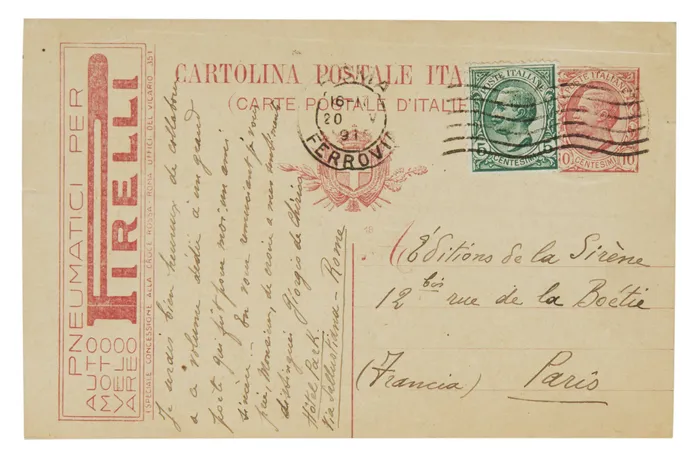 PNEUMATICI PER
PIRELLI
AUTO
MOTO
VELO
AREO
SPECIALE CONCESSIONE ALLA CROCE ROSSA - ROMA UFFICI DEL VICARIO 351
CARTOLINA POSTALE ITA
(CARTE POSTALE D'ITALIE
16
20 V
191
FERROVI
POSTE ITALIANE
5 CENTESIMI 5
POSTE ITALIANE
10 CENTESIMI 10
Je serais bien heureux de collaborer
a ce volume dédié à un grand
poète qui fût pour moi un ami
sincère. En vous remerciant je vous
prie, Monsieur, de croire a mes sentiments
distingués Giorgio de Chirico
Hôtel Park.
Via Sallustiana - Rome
Éditions de la Sirène
12 bis rue de la Boétie
(Francia) Paris